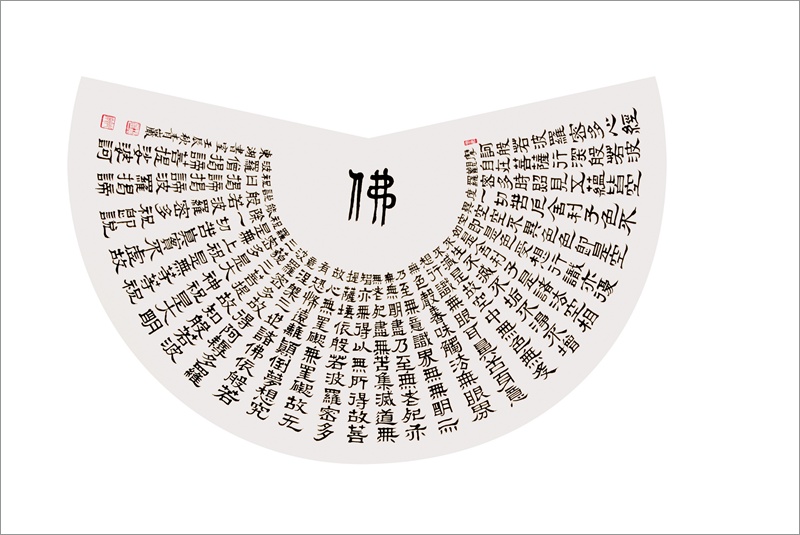 摩訶般若波羅密多心經
觀自在菩薩行深般若波
羅密多時照見五蘊皆空
度一切苦厄舍利子色不
異空空不異色色即是空
空即是色受想行識亦復
如是舍利子是諸法空相
不生不滅不垢不淨不增
不減是故空中無色無受
想行識無眼耳鼻舌身意
無色聲香味觸法無眼界
乃至無意識界無無明亦
無無明盡乃至無老死亦
無老死盡無苦集滅道無
智亦無得以無所得故菩
提薩埵依般若波羅密多
故心無罣礙無罣礙故无
有恐怖遠離顛倒夢想究
竟涅槃三世諸佛依般若
波羅密多故得阿耨多羅
三藐三菩提故知般若波
羅密多是大神祝是大明
祝是無上祝是無等等祝
能除一切苦真實不虛故
說般若波羅密多祝即說
祝曰揭諦揭諦波羅揭諦
波羅僧揭諦菩提沙婆訶
東湖書室壬辰秋青巖
佛